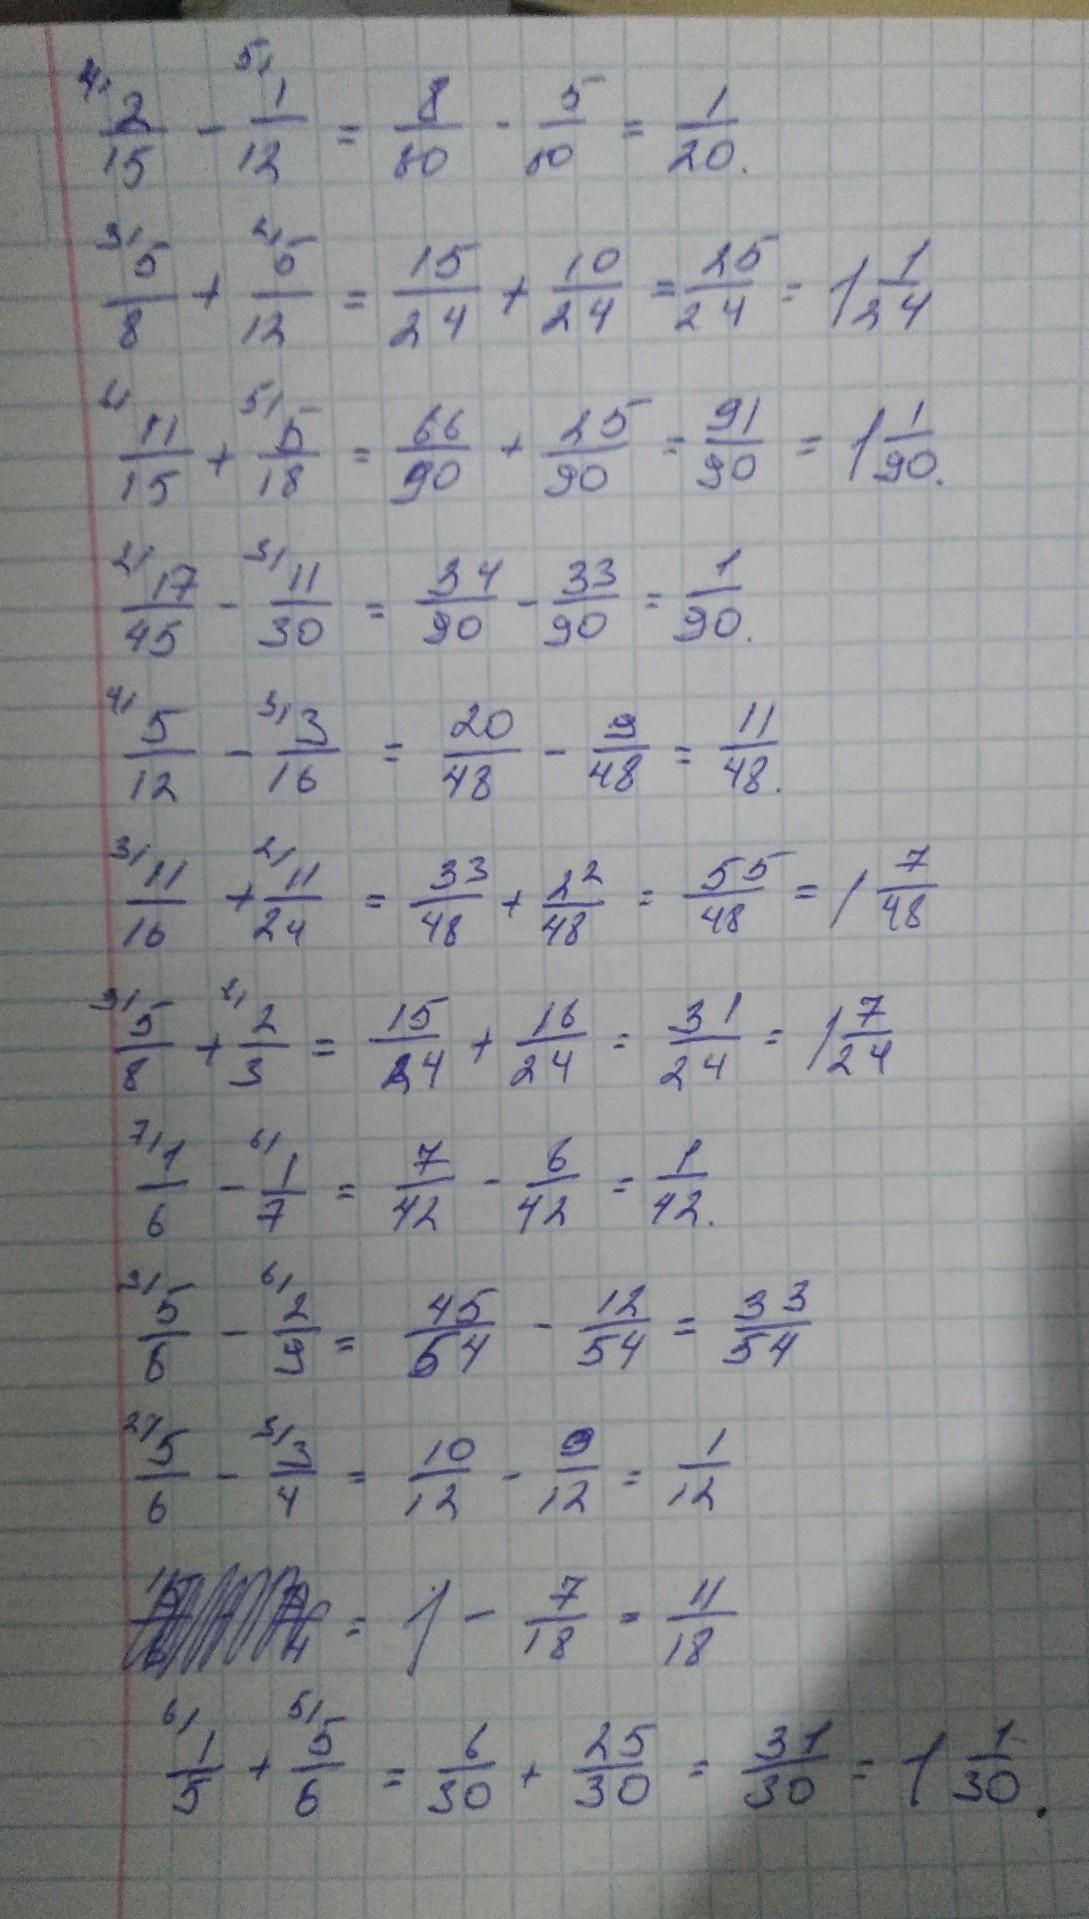 4/ 2/15 - 5/ 1/12 = 8/60 - 5/60 = 1/20.
3/ 5/8 + 2/ 5/12 = 15/24 + 10/24 = 25/24 = 1 1/24
11/15 + 5/ 5/18 = 66/90 + 25/90 = 91/90 = 1 1/90.
2/ 17/45 - 3/ 11/30 = 34/90 - 33/90 = 1/90.
4/ 5/12 - 3/ 3/16 = 20/48 - 9/48 = 11/48.
3/ 11/16 + 2/ 11/24 = 33/48 + 22/48 = 55/48 = 1 7/48
3/ 5/8 + 8/ 2/3 = 15/24 + 16/24 = 31/24 = 1 7/24
7/ 1/6 - 6/ 1/7 = 7/42 - 6/42 = 1/42.
9/ 5/6 - 6/ 2/9 = 45/54 - 12/54 = 33/54
2/ 5/6 - 3/ 3/4 = 10/12 - 9/12 = 1/12
= 1 - 7/18 = 11/18
6/ 1/5 + 5/ 5/6 = 6/30 + 25/30 = 31/30 = 1 1/30.